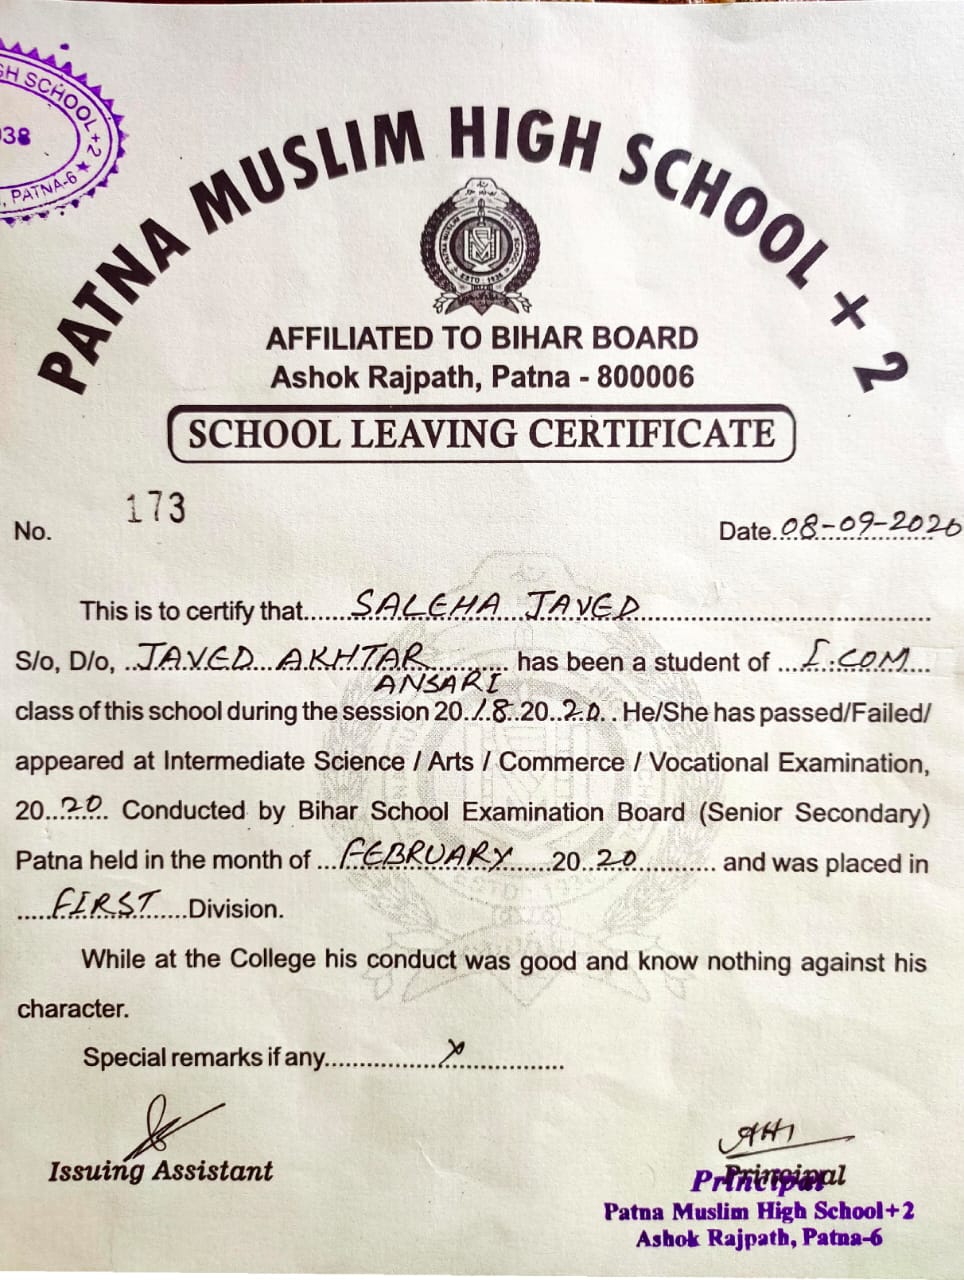 GH SCHOOL+2
938
, PATNA-6 ★
PATNA MUSLIM HIGH SCHOOL + 2
AFFILIATED TO BIHAR BOARD
Ashok Rajpath, Patna - 800006
SCHOOL LEAVING CERTIFICATE
No. 173
Date. 08-09-2020
This is to certify that SALEHA JAVED
S/o, D/o, JAVED AKHTAR has been a student of I.COM
ANSARI
class of this school during the session 2018 2020. He/She has passed/Failed/
appeared at Intermediate Science / Arts / Commerce / Vocational Examination,
2020 Conducted by Bihar School Examination Board (Senior Secondary)
Patna held in the month of FEBRUARY 2020 and was placed in
FIRST Division.
While at the College his conduct was good and know nothing against his
character.
Special remarks if any X
Issuing Assistant
Principal
Principal
Patna Muslim High School+2
Ashok Rajpath, Patna-6